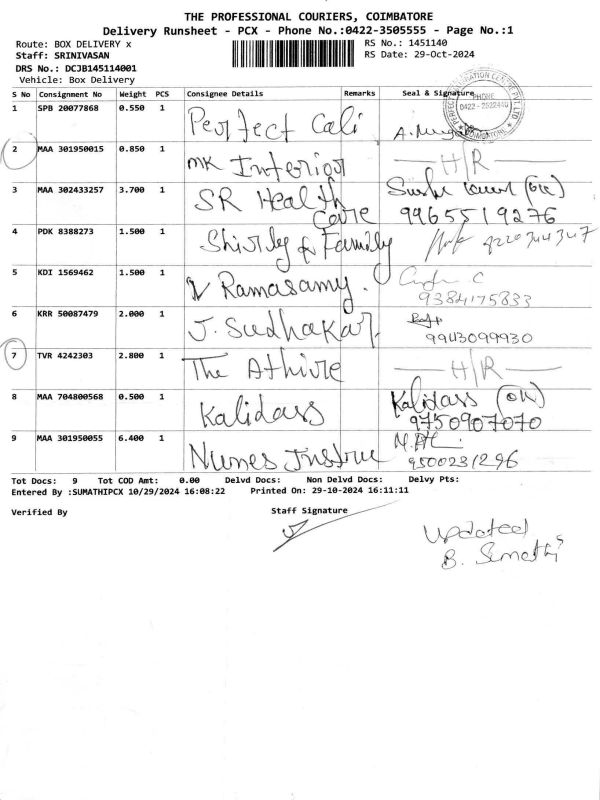 THE PROFESSIONAL COURIERS, COIMBATORE
Delivery Runsheet - PCX - Phone No.:0422-3505555 - Page No.:1
Route: BOX DELIVERY x RS No.: 1451140
Staff: SRINIVASAN RS Date: 29-Oct-2024
DRS No.: DCJB145114001
Vehicle: Box Delivery
S No Consignment No Weight PCS Consignee Details Remarks Seal & Signature
PHONE
0422 - 2522440
COIMBATORE
1 SPB 20077868 0.550 1 Perfect Cali
2 MAA 301950015 0.850 1 MK Interior H/R
3 MAA 302433257 3.700 1 SR Health Care (OK) 9965519276
4 PDK 8388273 1.500 1 Shirley & Family 9220344347
5 KDI 1569462 1.500 1 V Ramasamy. 9384175833
6 KRR 50087479 2.000 1 J. Sudhakar. 9943099930
7 TVR 4242303 2.800 1 The Athire H/R
8 MAA 704800568 0.500 1 Kalidass Kalidass (OK) 9750907070
9 MAA 301950055 6.400 1 Nunes Instru 9500231296
Tot Docs: 9 Tot COD Amt: 0.00 Delvd Docs: Non Delvd Docs: Delvy Pts:
Entered By :SUMATHIPCX 10/29/2024 16:08:22 Printed On: 29-10-2024 16:11:11
Verified By Staff Signature
Updated
B. Sumathi